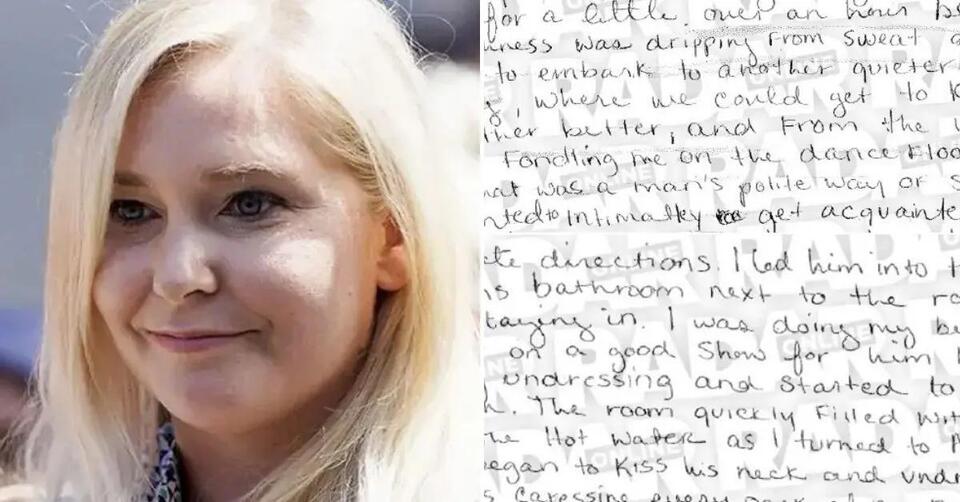 for a little over an hour be
ness was dripping from sweat a
to embark to another quieter
, where we could get to k
her better, and From the w
Fondling me on the dance Floo
hat was a man's polite way or s
nted to intimatley get acquainte
te directions. I led him into t
is bathroom next to the ro
taying in. I was doing my be
on a good Show for him
undressing and started to
h. The room quickly Filled wit
he Hot water as I turned to
egan to Kiss his neck and und
s caressing every